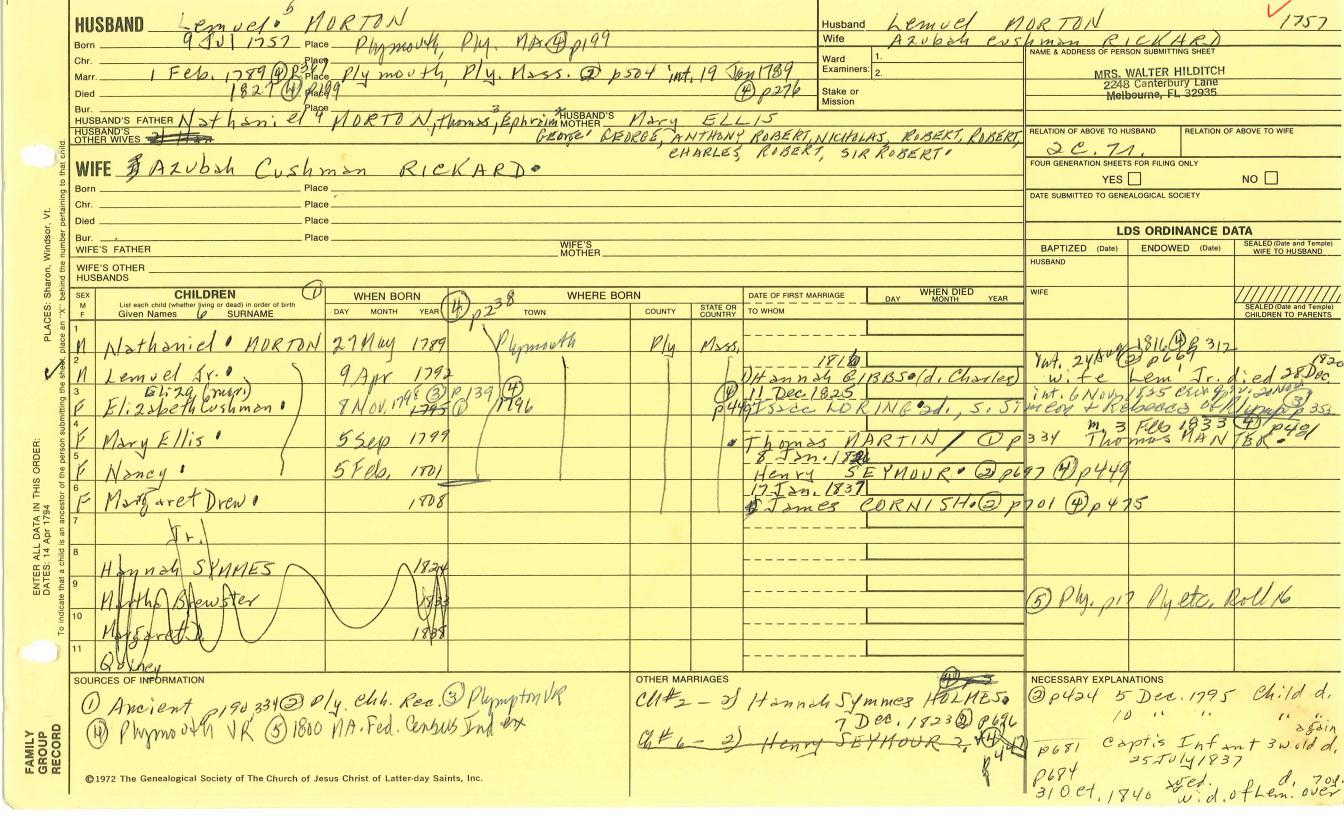 HUSBAND Lemuel 5 MORTON
Born 9 Jul 1757 Place Plymouth, Ply. MA. ④ p199
Chr. Place
Marr. 1 Feb. 1789 ④ Place Plymouth, Ply. Mass. ② p504 int. 19 Jan 1789
Died 1827 ④ p199 Place ④ p276
Bur. Place
HUSBAND'S FATHER Nathaniel 4 MORTON, Thomas, 3 Ephraim 2 HUSBAND'S MOTHER Mary ELLIS
HUSBAND'S OTHER WIVES George 1 GEORGE, ANTHONY ROBERT, NICHOLAS, ROBERT, ROBERT,
CHARLES, ROBERT, SIR ROBERT.
WIFE Azubah Cushman RICKARD
Born Place
Chr. Place
Died Place
Bur. Place
WIFE'S FATHER WIFE'S MOTHER
WIFE'S OTHER HUSBANDS
Husband Lemuel MORTON 1757
Wife Azubah Cushman RICKARD
Ward Examiners: 1.
2.
Stake or Mission
NAME & ADDRESS OF PERSON SUBMITTING SHEET
MRS. WALTER HILDITCH
2248 Canterbury Lane
Melbourne, FL 32935
RELATION OF ABOVE TO HUSBAND RELATION OF ABOVE TO WIFE
2C.7r.
FOUR GENERATION SHEETS FOR FILING ONLY
YES NO
DATE SUBMITTED TO GENEALOGICAL SOCIETY
LDS ORDINANCE DATA
BAPTIZED (Date) ENDOWED (Date) SEALED (Date and Temple) WIFE TO HUSBAND
HUSBAND
WIFE
SEALED (Date and Temple) CHILDREN TO PARENTS
SEX M F CHILDREN ① WHEN BORN ④ p238 WHERE BORN DATE OF FIRST MARRIAGE WHEN DIED
List each child (whether living or dead) in order of birth
Given Names 6 SURNAME DAY MONTH YEAR TOWN COUNTY STATE OR COUNTRY TO WHOM DAY MONTH YEAR
1 M Nathaniel MORTON 27 May 1789 Plymouth Ply Mass.
1816 Int. 24 Aug 1816 ④ p312 ② p669
2 M Lemuel Jr. 9 Apr 1792 Hannah GIBBS (d. Charles) wife Lem' Jr. died 28 Dec
Eliza
3 F Elizabeth Cushman 8 Nov. ③ p139 ④ 1796 11 Dec 1825 int. 6 Nov 1825
Isacc LORING 2d., s. Simeon & Rebecca of Plymp p353
m. 3 Feb 1833 ④ p401
4 F Mary Ellis 5 Sep 1799 Thomas MARTIN / ① p334 Thomas MANTER
8 Jan. 1826
5 F Nancy 5 Feb. 1801 Henry SEYMOUR ② p697 ④ p449
17 Jan. 1837
6 F Margaret Drew 1808 James CORNISH ② p701 ④ p475
7 Jr.
8 Hannah SYMMES 1824
9 Martha Brewster 1833 ⑤ Ply. p17 Ply etc. Roll 16
10 Margaret D. 1838
11 Quincy
SOURCES OF INFORMATION
① Ancient p190, 334 ② Ply. Chh. Rec. ③ Plympton VR
④ Plymouth VR ⑤ 1800 MA. Fed. Census Index
OTHER MARRIAGES
Ch#2 - 2) Hannah Symmes HOLMES
7 Dec. 1823 ② p696
Ch#6 - 2) Henry SEYMOUR
NECESSARY EXPLANATIONS
② p424 5 Dec. 1795 Child d.
10 " " " " again
p681 Capt's Infant 3 w old d.
25 July 1837
p684
31 Oct. 1840 d. 70 wid. of Lem. over
©1972 The Genealogical Society of The Church of Jesus Christ of Latter-day Saints, Inc.
FAMILY GROUP RECORD
ENTER ALL DATA IN THIS ORDER:
DATES: 14 Apr 1794
PLACES: Sharon, Windsor, Vt.
To indicate that a child is an ancestor of the person submitting the sheet, place an "X" behind the number pertaining to that child.